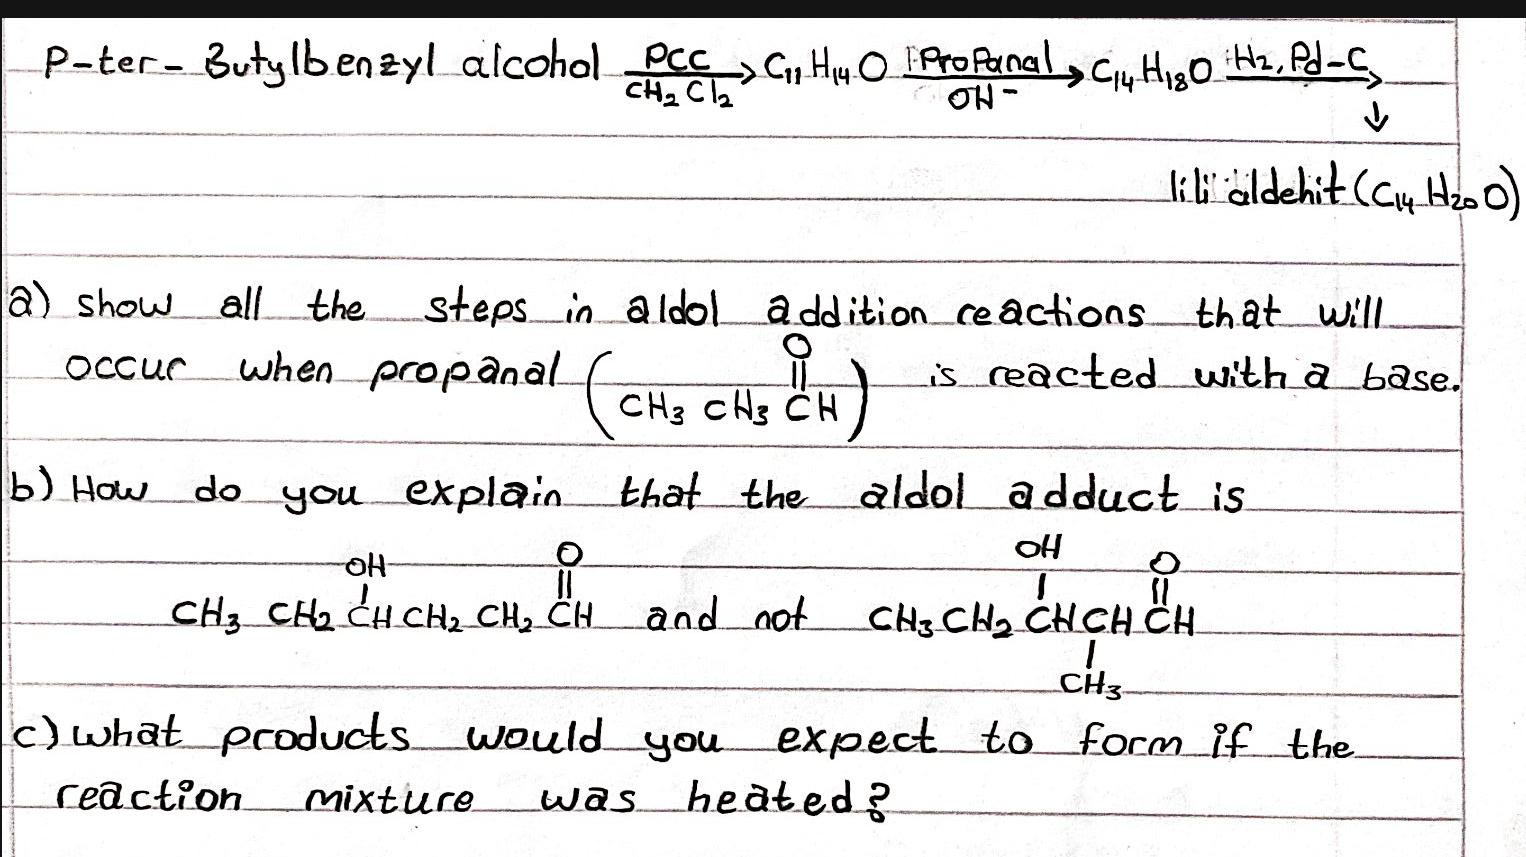 P-ter-Butylbenzyl alcohol PCC CH2Cl2 → C11H14O 1·Propanal OH- → C14H18O H2, Pd-C →
↓
lili aldehit (C14H20O)
a) show all the steps in aldol addition reactions that will
occur when propanal (CH3 CH3 CH) is reacted with a base.
O
||
b) How do you explain that the aldol adduct is
OH O OH O
CH3 CH2 CH CH2 CH2 CH and not CH3 CH2 CH CH CH
CH3
c) what products would you expect to form if the
reaction mixture was heated?